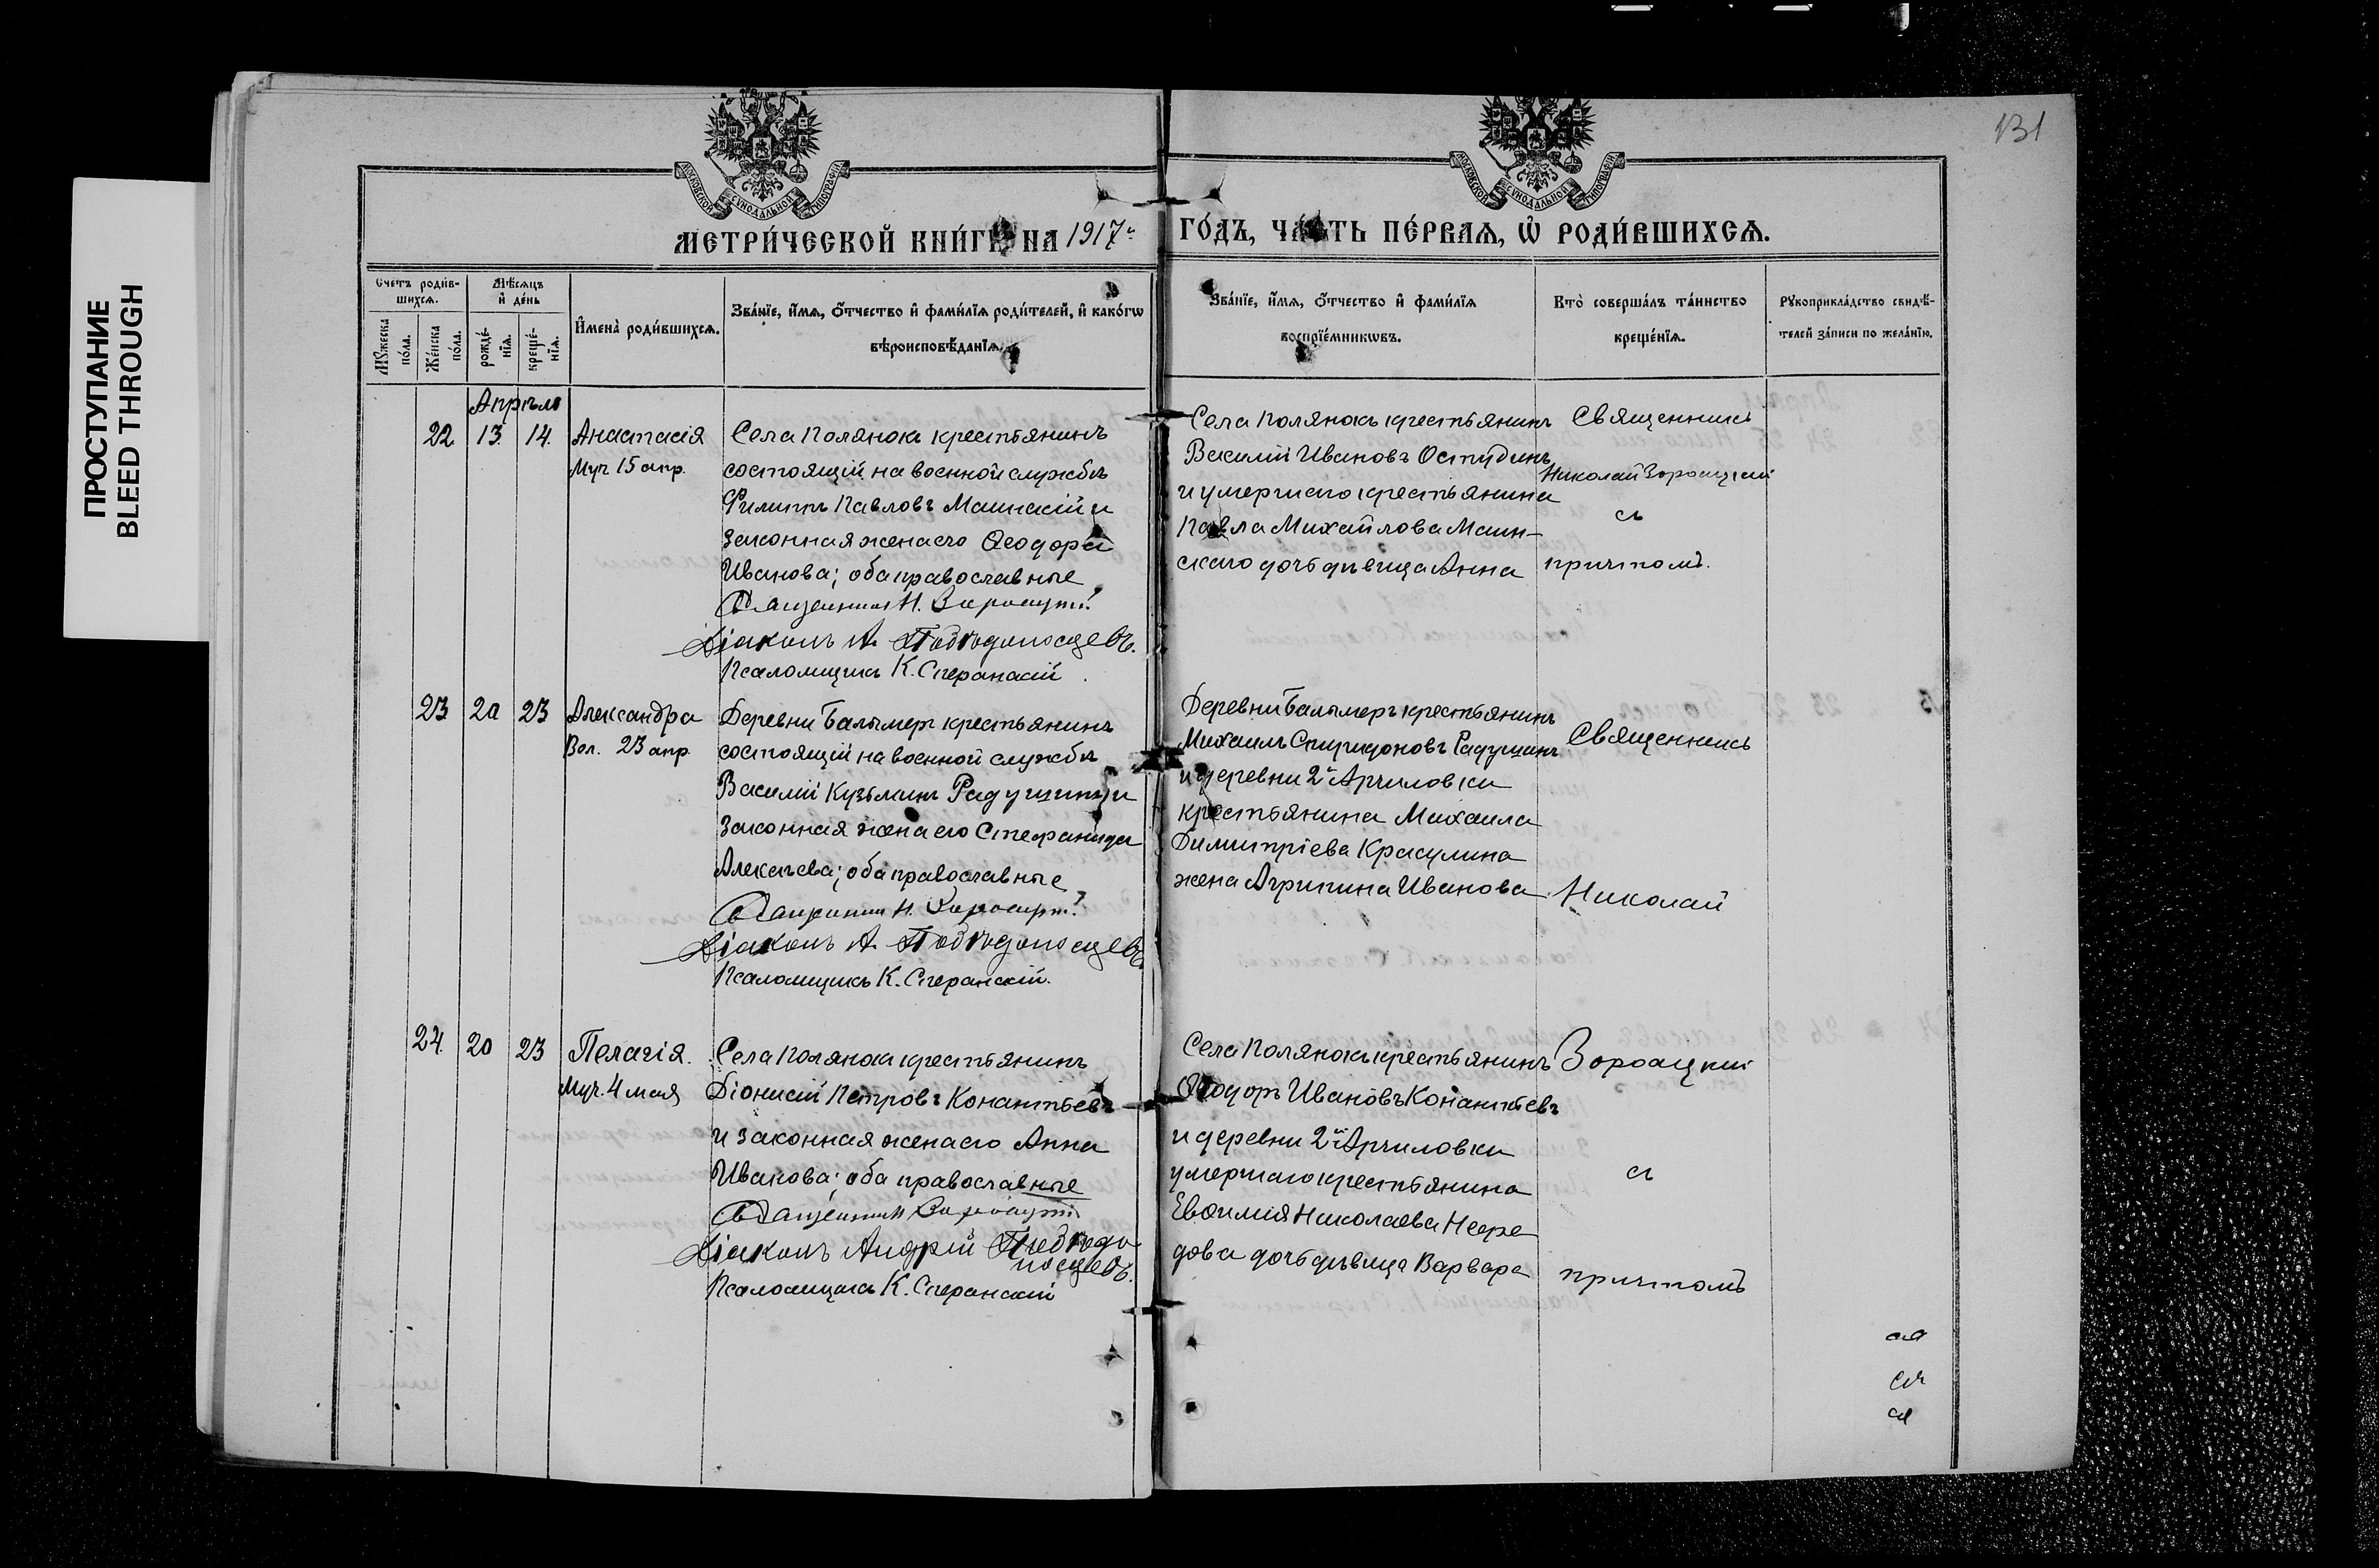 ПРОСТУПАНИЕ
BLEED THROUGH
131
МОСКОВСКОЙ СѴНОДАЛЬНОЙ ТИПОГРАФІИ
МОСКОВСКОЙ СѴНОДАЛЬНОЙ ТИПОГРАФІИ
МЕТРИ́ЧЕСКОЙ КНИ́ГИ НА 1917й ГО́ДЪ, ЧА́СТЬ ПЕ́РВАѦ, Ѡ҆ РОДИ́ВШИХСѦ.
Счетъ роди́в-
шихсѧ.
Мѣ́сѧцъ
и҆ де́нь
Мꙋжеска
по́ла.
Же́нска
по́ла.
рожде́-
нїѧ.
креще́-
нїѧ.
И҆мена̀ роди́вшихсѧ.
Зва́нїе, и҆́мѧ, ѻ҆́тчество и҆ фами́лїѧ роди́телей, и҆ како́гѡ
вѣроисповѣ́данїѧ.
Зва́нїе, и҆́мѧ, ѻ҆́тчество и҆ фами́лїѧ
воспрїе́мникѡвъ.
Кто̀ соверша́лъ та́инство
креще́нїѧ.
Рꙋкоприкла́дство свидѣ́-
телей за́писи по жела́нїю.
Апрѣль
22 13. 14. Анастасія
Муч 15 апр.
Села Полянокъ крестьянинъ
состоящій на военной службѣ
Филиппъ Павловъ Маинскій и
законная жена его Ѳеодора
Иванова; оба православные
Священникъ Н. Зороастровъ
Діаконъ А. Побѣдоносцевъ.
Псаломщикъ К. Сперанскій.
Села Полянокъ крестьянинъ
Василій Ивановъ Остудинъ
и умершаго крестьянина
Павла Михайлова Маин-
скаго дочь дѣвица Анна
Священникъ
Николай
съ
причтомъ.
23 20 23 Александра
Вол. 23 апр.
Деревни Балымеръ крестьянинъ
состоящій на военной службѣ
Василій Кузьминъ Радушинъ и
законная жена его Стефанида
Алексѣева; оба православные
Священникъ Н.
Діаконъ А. Побѣдоносцевъ.
Псаломщикъ К. Сперанскій.
Деревни Балымеръ крестьянинъ
Михаилъ Спиридоновъ Радушинъ
и деревни 2й Арчиловки
крестьянина Михаила
Димитріева Красулина
жена Агрипина Иванова
Священникъ
Николай
24. 20 23 Пелагія.
Муч. 4 мая
Села Полянокъ крестьянинъ
Діонисій Петровъ Конантьевъ
и законная жена его Анна
Иванова; оба православные
Священникъ
Діаконъ Андрей Побѣдо
носцевъ.
Псаломщикъ К. Сперанскій
Села Полянокъ крестьянинъ
Ѳеодоръ Ивановъ Конантьевъ
и деревни 2й Арчиловки
умершаго крестьянина
Евѳимія Николаева Нефе
дова дочь дѣвица Варвара
съ
причтомъ